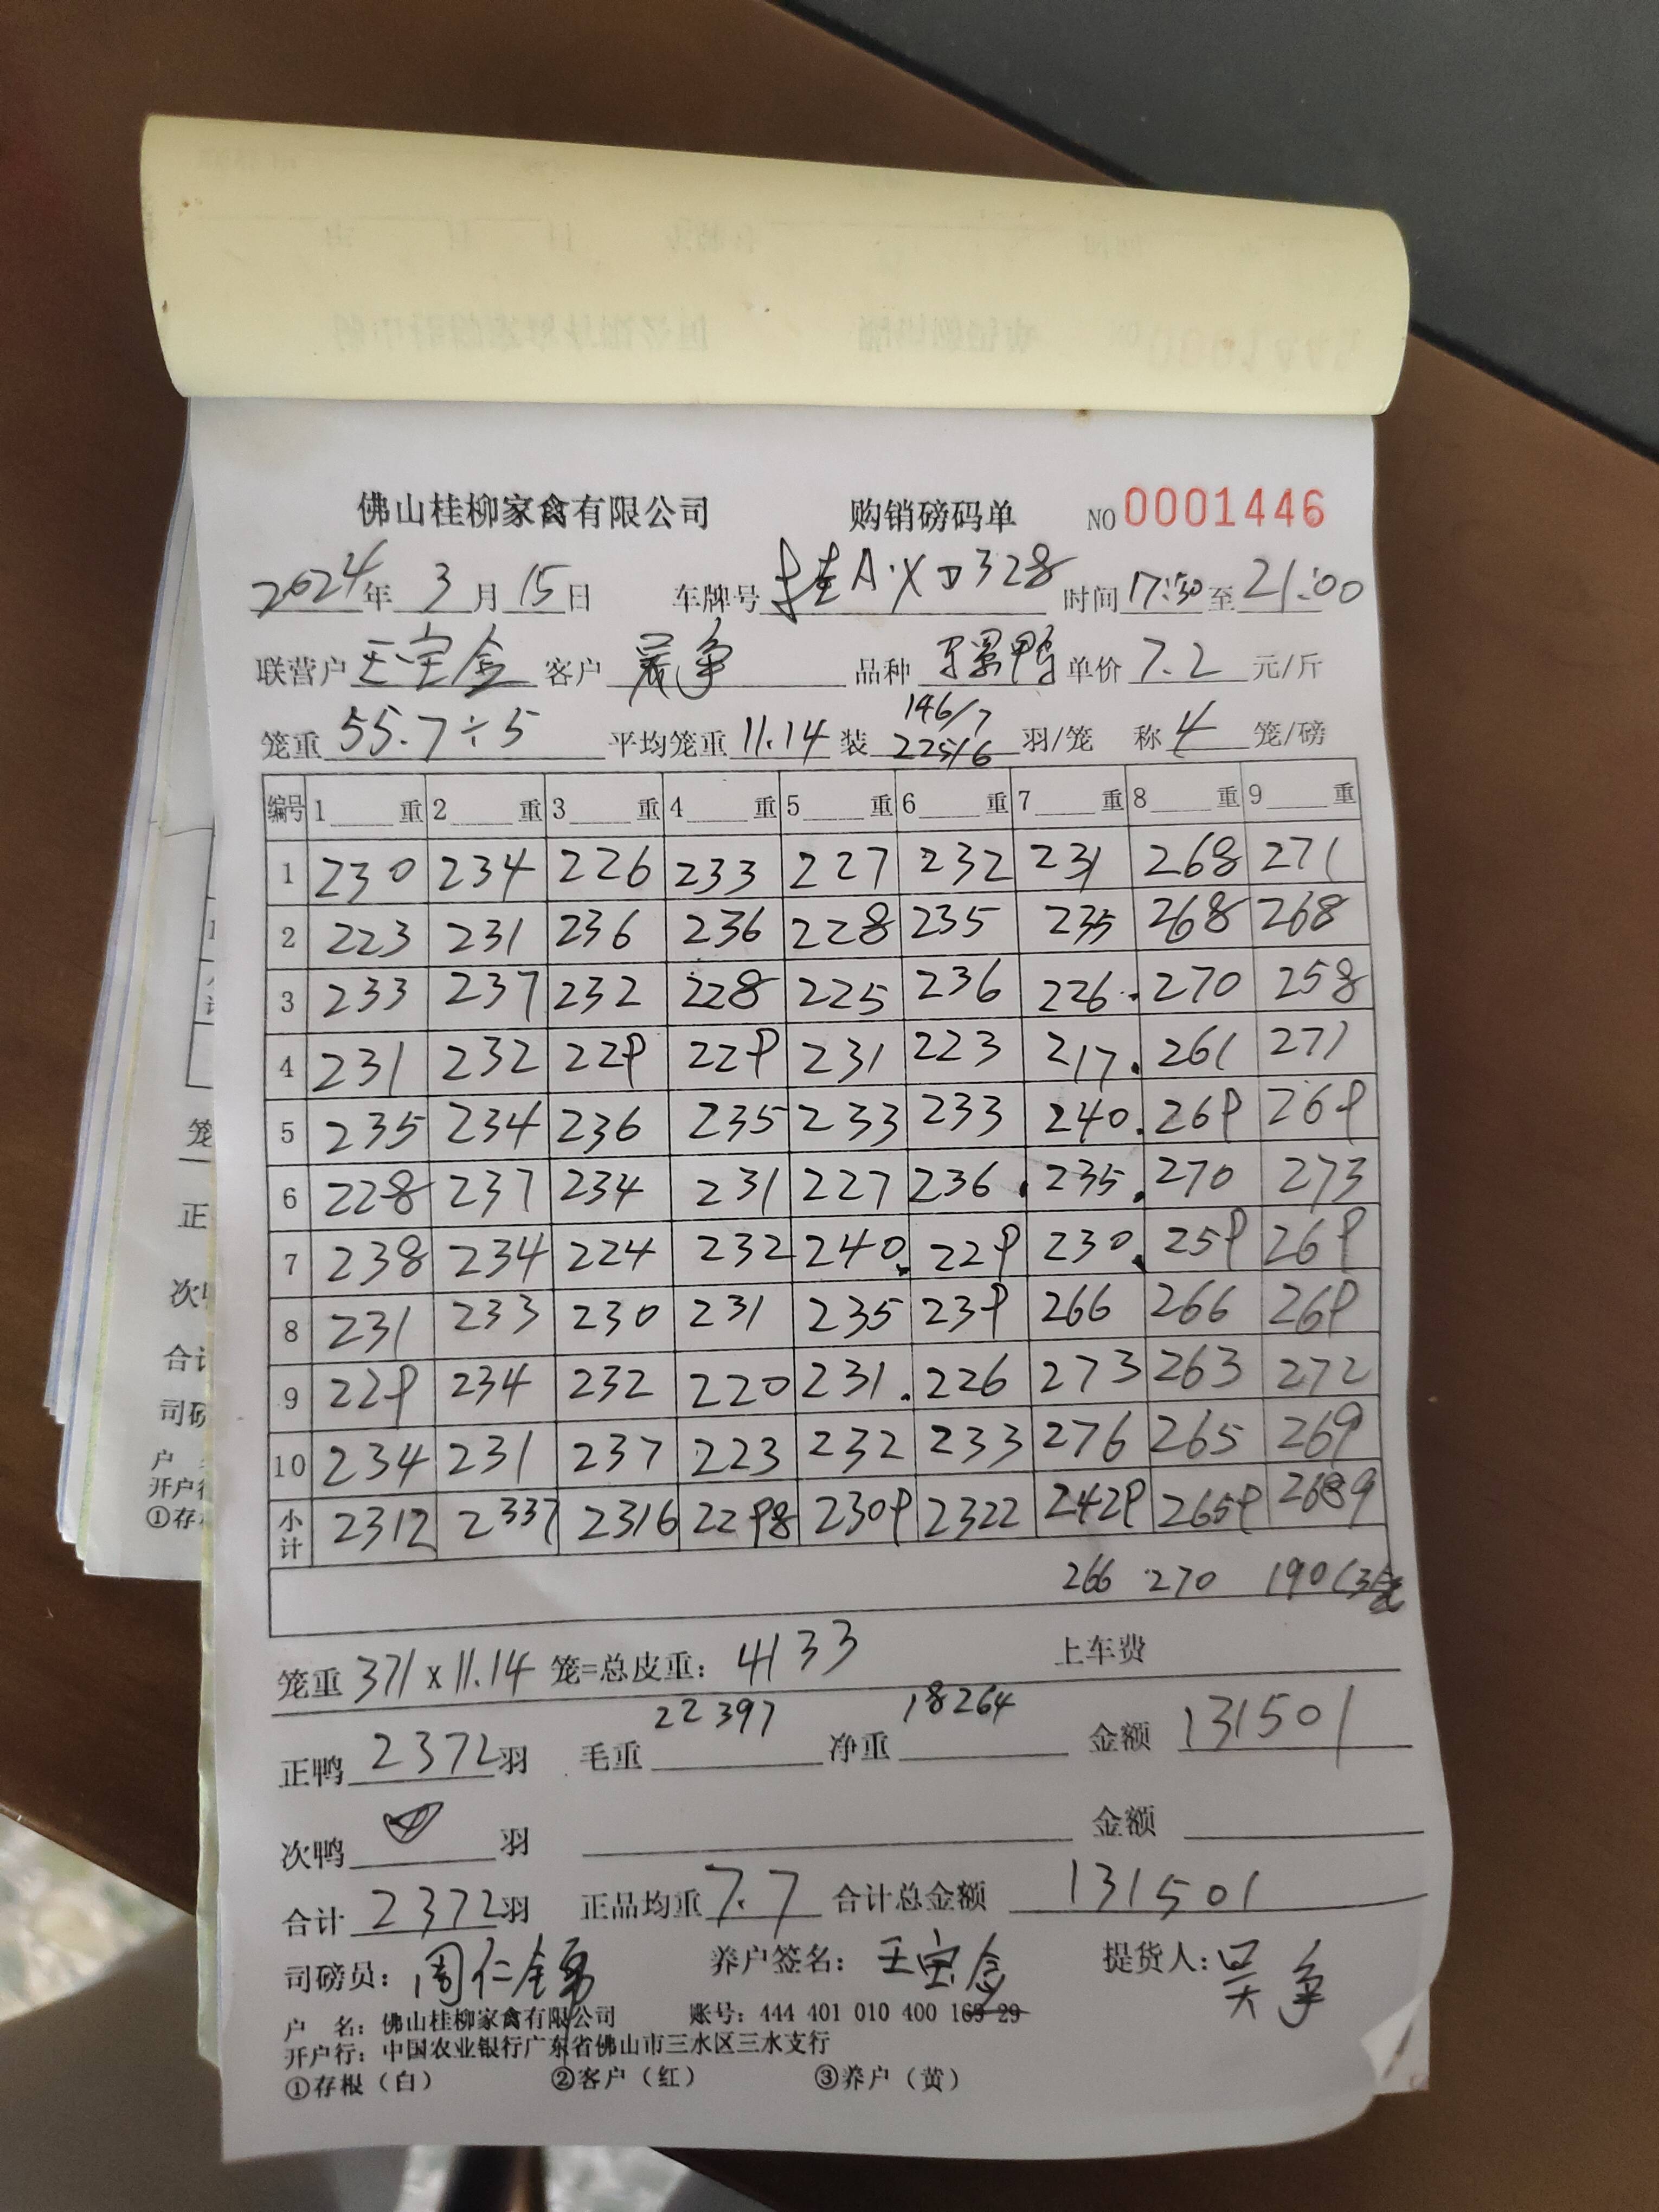 佛山桂柳家禽有限公司 购销磅码单 NO 0001446
2024年 3月 15日 车牌号 桂A·XD328 时间 17:50 至 21:00
联营户 王宝金 客户 吴净 品种 骡鸭 单价 7.2 元/斤
146/7
笼重 55.7÷5 平均笼重 11.14 装 225/6 羽/笼 称 4 笼/磅
编号 1 重 2 重 3 重 4 重 5 重 6 重 7 重 8 重 9 重
1 230 234 226 233 227 232 231 268 271
2 223 231 236 236 228 235 235 268 268
3 233 237 232 228 225 236 226. 270 258
4 231 232 229 229 231 223 217. 261 271
5 235 234 236 235 233 233 240. 269 269
6 228 237 234 231 227 236. 235. 270 273
7 238 234 224 232 240. 229 230. 259 269
8 231 233 230 231 235 239 266 266 269
9 229 234 232 220 231. 226 273 263 272
10 234 231 237 223 232 233 276 265 269
小计 2312 2337 2316 2298 2309 2322 2429 2659 2689
266 270 190(3笼
笼重 371 x 11.14 笼=总皮重: 4133 上车费
正鸭 2372 羽 毛重 22397 净重 18264 金额 131501
次鸭 羽 金额
合计 2372 羽 正品均重 7.7 合计总金额 131501
司磅员: 周仁锦 养户签名: 王宝金 提货人: 吴净
户 名: 佛山桂柳家禽有限公司 账号: 444 401 010 400 169 29
开户行: 中国农业银行广东省佛山市三水区三水支行
①存根(白) ②客户(红) ③养户(黄)